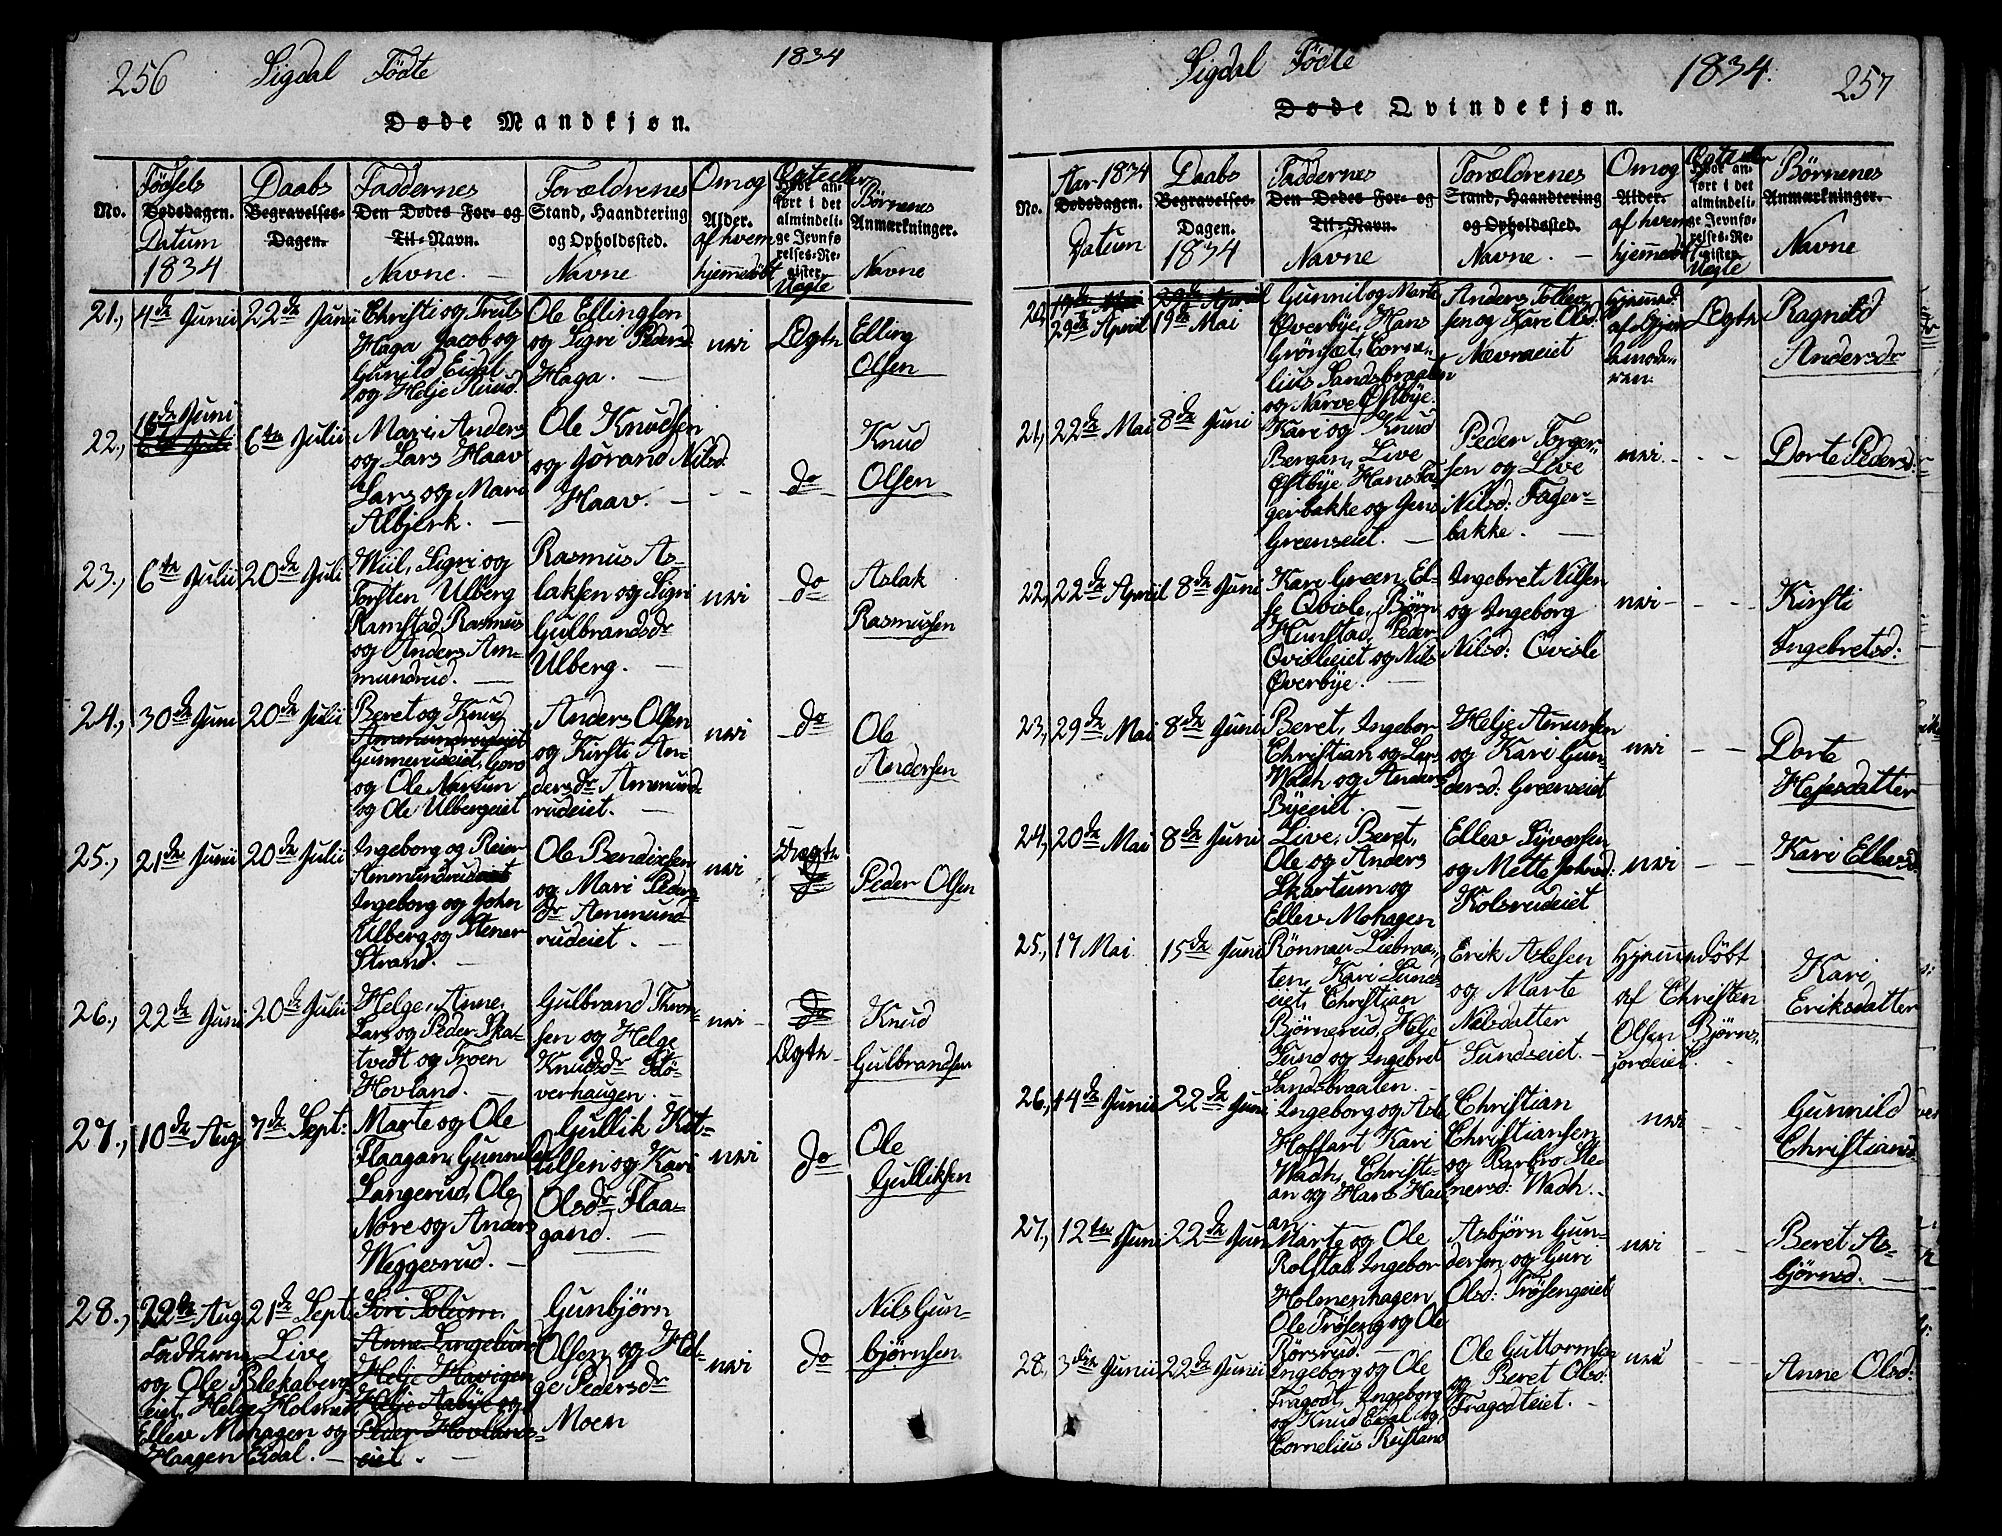 256 Sigdal Födte 1834
Døde Mandkjøn.
No.
Födsels
Dødsdagen.
Datum
1834
Daabs
Begravelses-
Dagen.
Faddernes
Den Dødes For- og
Til-Navn.
Navne.
Forældrenes
Stand, Haandtering
og Opholdssted.
Navne
Om og
Alder.
af hvem
hjemmedöbt
Ægte eller
Hvor an-
ført i det
almindeli-
ge Jevnfø-
relses-Re-
gister.
Uægte
Börnenes
Anmærkninger.
Navne
21., 4de Junii 22de Junii
Christi og Truls
Haga Jacob og
Gunild Eidal
og Helje Ruud
Ole Ellingsen
og Sigri Pedersd
Haga. —
nei
Ægte
Elling
Olsen
22., 16de Juni
6te Juli
6te Julii
Mari, Anders
og Lars Haav
Lars og Mari
Albjerk. —
Ole Knudsen
og Jörand Nilsd:
Haav. —
do
Knud
Olsen
23., 6te Julii 20de Juli
Wiil, Sigri og
Torsten Ulberg
Ramstad, Rasmus
og Anders Am-
mundrud. —
Rasmus As-
laksen og Sigri
Gulbrandsdr
Ulberg. —
nei
do
Aslak
Rasmussen
24., 30de Juni 20de Julii
Beret og Knud
Ammundrudeiet
Gunnerudeiet, Goro
og Ole Narum
og Ole Ulbergeiet
Anders Olsen
og Kirsti An-
dersdr Ammund-
rudeiet. —
nei
do
Ole
Andersen
25., 21de Junii 20de Julii
Ingeborg og Reier
Ammundrudeiet
Ingeborg og John
Ulberg og Stener
Strand. —
Ole Bendixsen
og Mari Peders
dr Ammund-
rudeiet. —
nei
Uægte
do
Peder Olsen
26., 22de Juni 20de Julii
Helge, Anne,
Lars og Peder Skat-
tvedt og Troen
Hovland. —
Gulbrand Thron-
sen og Helge
Knudsdr Stö-
verhaugen. —
nei
do
Ægte
Knud
Gulbrandsen
27., 10de Aug 7de Sept:
Marte og Ole
Flaagan, Gunnild
Langerud, Ole
Nore og Anders
Weggesrud. —
Gullik Kit-
tilsen og Kari
Olsdr Flaa-
gand. —
nei
do
Ole
Gulliksen
28., 22de Aug 21de Sept
Siri Solum,
Anne Langelund
Helje Havigen
Helje Aabye og
Peder Hovlands-
eiet. —
Fadderne Live
og Ole Blekaberg
eiet, Helge Holmen
Ellev Mohagen og
Haagen Eidal. —
Gunbjörn
Olsen og Hel-
ge Pedersdr
Moen
nei
do
Nils Gun-
björnsen
Sigdal Födte 1834. 257
Døde Qvindekjøn.
No.
Aar 1834
Dødsdagen.
Datum
Daabs
Begravelses-
Dagen.
1834
Faddernes
Den Dødes For- og
Til-Navn.
Navne
Forældrenes
Stand, Haandtering
og Opholdssted.
Navne. —
Om og
Alder.
af hvem
hjemmedöbt
Ægte eller
Hvor an-
ført i det
almindeli-
ge Jevnfø-
relses-Re-
gister.
Uægte
Börnenes
Anmærkninger.
Navne
20, 19de Mai 29de April
29de April 19de Mai
Gunnil og Marte
Överbye, Hans
Grönsæt, Corne-
lius Sandsbraaten
og Narve Östbye.
Anders Tollev
sen og Kari Olsd:
Nævraeiet
Hjemmed:
af Gjor-
demode-
ren.
Ægte
Ragnild
Andersdr
21, 22de Mai 8de Juni
Kari og Knud
Bergan, Live
Östbye Hans Fa-
gerbakke og Jens
Greenseiet. —
Peder Torger-
sen og Live
Nilsd: Fager-
bakke. —
nei
Dorte Pedersd:
22, 22de April 8de Juni
Kari Green, El-
se Qvisle, Björn
Hunstad, Peder
Qvisleeiet og Nils
Överbye. —
Ingebret Nilsen
og Ingeborg
Nilsd: Qvisle
nei
Kirsti
Ingebretsd:
23, 29de Mai 8de Juni
Beret, Ingebor
Christian og Lars
Wadh og Anders
Byeeiet. —
Helje Amunsen
og Kari Gun-
dersd: Greenseiet
nei
Dorte
Heljesdatter
24, 20de Mai 8de Juni
Live, Beret,
Ole og Anders
Skartum og
Ellev Mohagen
Ellev Syversen
og Mette Johnsd:
Kolsrudeiet
nei
Kari Ellevsd
25., 17 Mai 15de Juni
Rönnau Liebraa-
ten, Kari Lunds
eiet, Christian
Björnerud, Helje
Lund og Ingebret
Sandsbraaten. —
Erik Aslesen
og Marte
Nilsdatter
Lundseiet. —
Hjemmedöbt
af Christen
Olsen Björns-
jordeiet. —
Kari
Eriksdatter
26, 14de Junii 22de Juni
Ingeborg og Asle
Hoffart Kari
Wadh, Christi-
an og Hans Hau-
an
Christian
Christiansen
og Barbro Ste-
nersd: Wadh. —
nei
Gunnild
Christians
27, 12te Juni 22de Juni
Marte og Ole
Rolstad Ingebor
Holmenhagen
Ole Tröseng og Ole
Rörsrud. —
Asbjörn Gun-
dersen og Guri
Olsd: Trösengeiet
nei
Beret As-
björnsd. —
28, 3die Junii 22de Junii
Ingeborg og Ole
Fragodt, Ingeborg
og Knud Eidal og
Cornelius Rustand
Ole Guttormsen
og Beret Olsd:
Fragodteiet. —
nei
Anne Olsd: